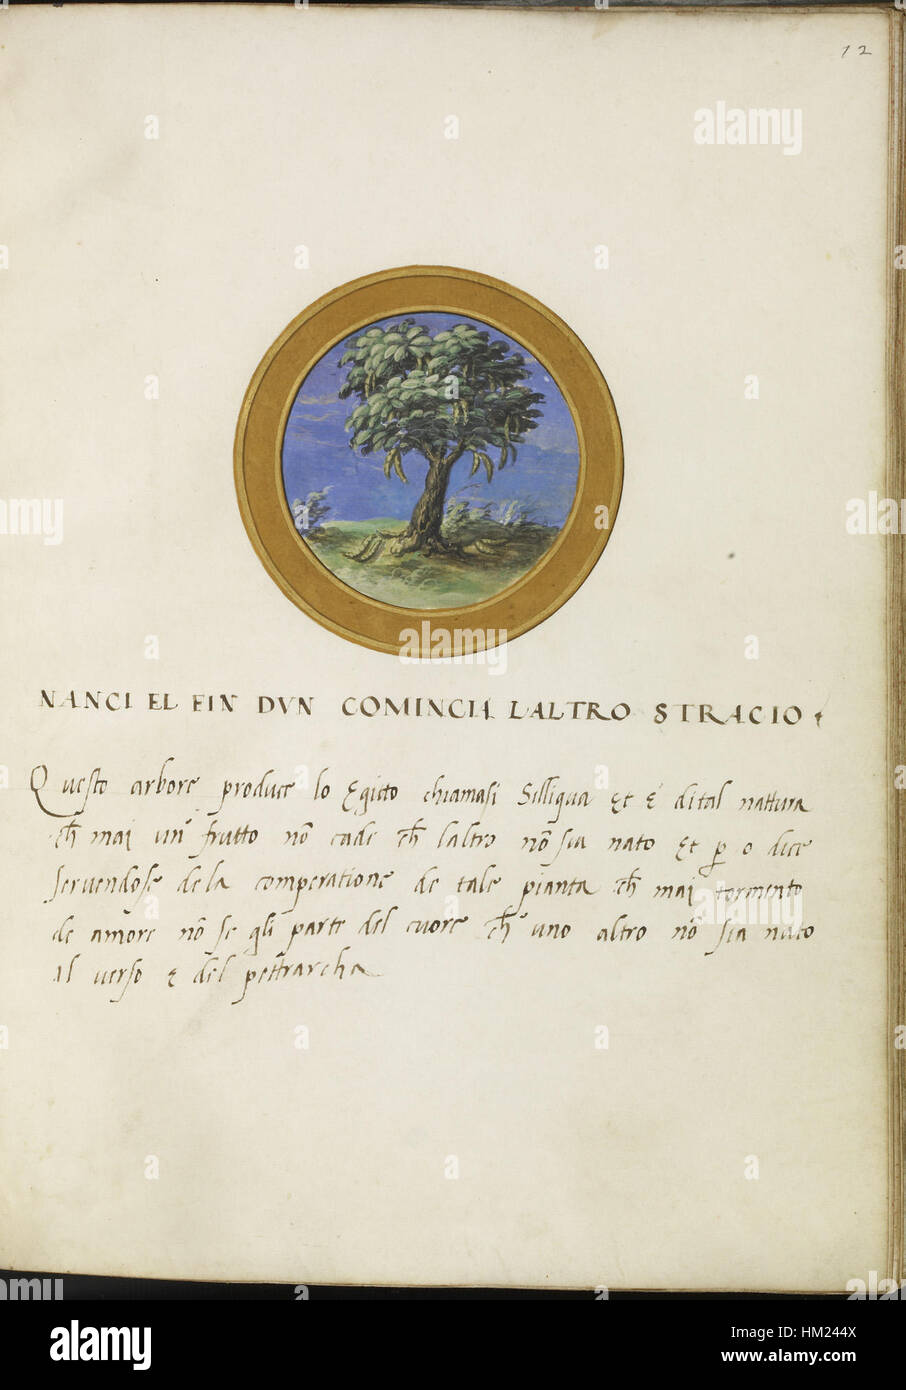 12
NANCI EL FIN DVN COMINCIA LALTRO STRACIO
Questo arbore produce lo Egitto chiamasi Silliqua et é di tal nattura
ch mai un frutto nõ cade ch laltro nõ sia nato et per o dice
servendose de la comperatione de tale pianta ch mai tormento
de amore nõ se gli parte del cuore ch uno altro nõ sia nato
il verso e del pettrarcha
alamy
Image ID: HM244X
www.alamy.com